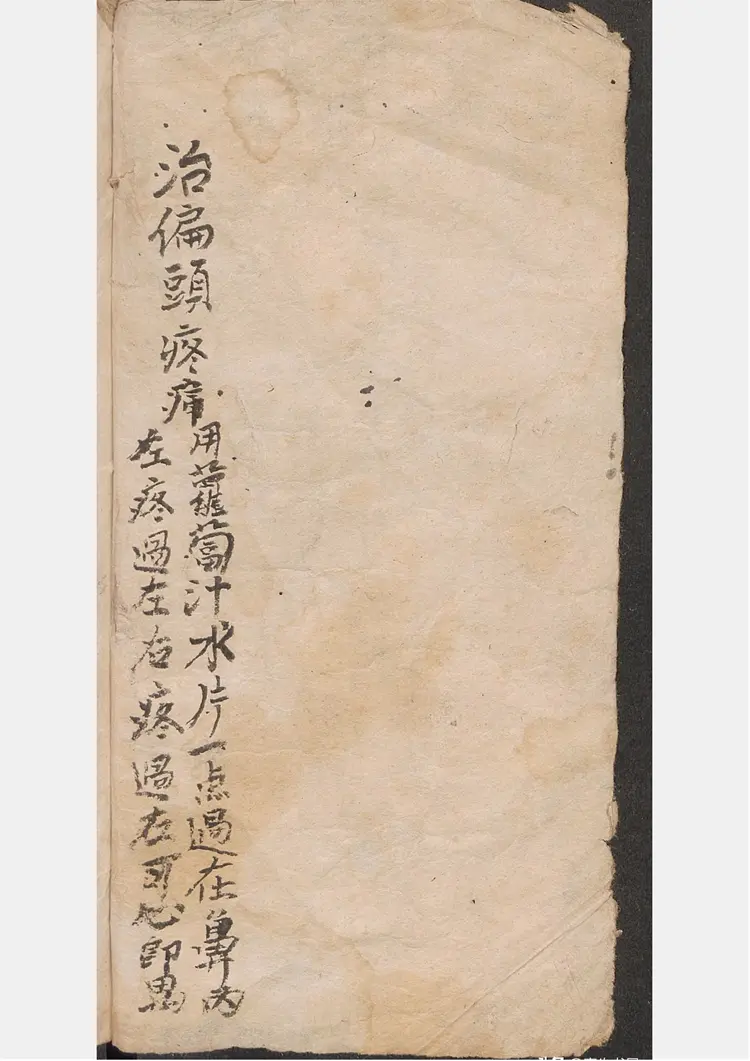 治偏頭疼痛
用蘿蔔汁水片一点過在鼻內
左疼過左右疼過右可